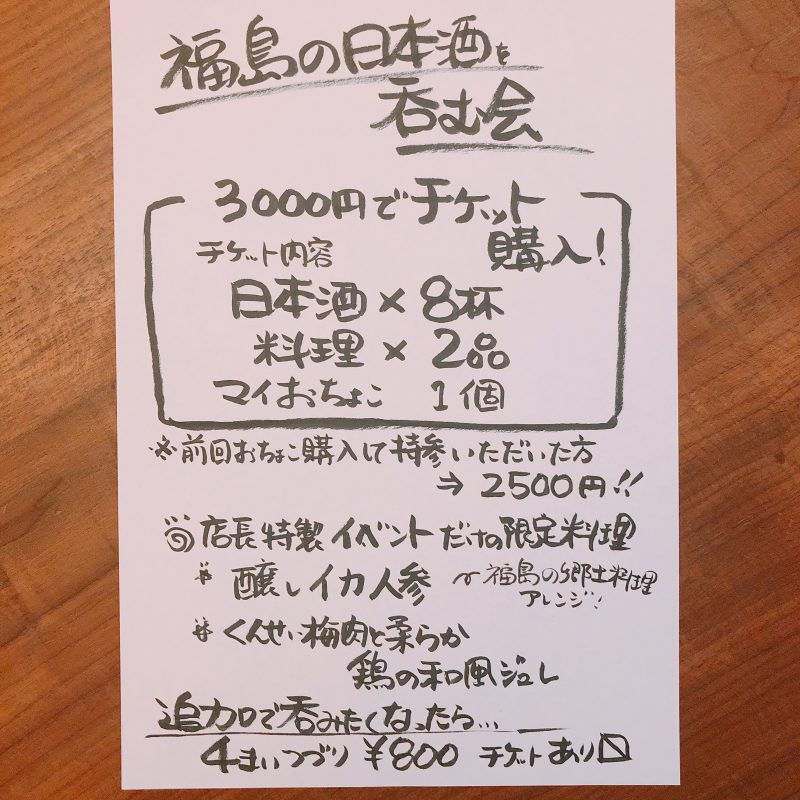 福島の日本酒を
呑む会
3000円でチケット
購入!
チケット内容
日本酒×8杯
料理×2品
マイおちょこ 1個
※前回おちょこ購入して持参いただいた方
⇒ 2500円!!
◎店長特製イベントだけの限定料理
* 醸しイカ人参 〜福島の郷土料理
アレンジ!
* くんせい梅肉と柔らか
鶏の和風ジュレ
追加で呑みたくなったら...
4まいつづり ¥800 チケットあり